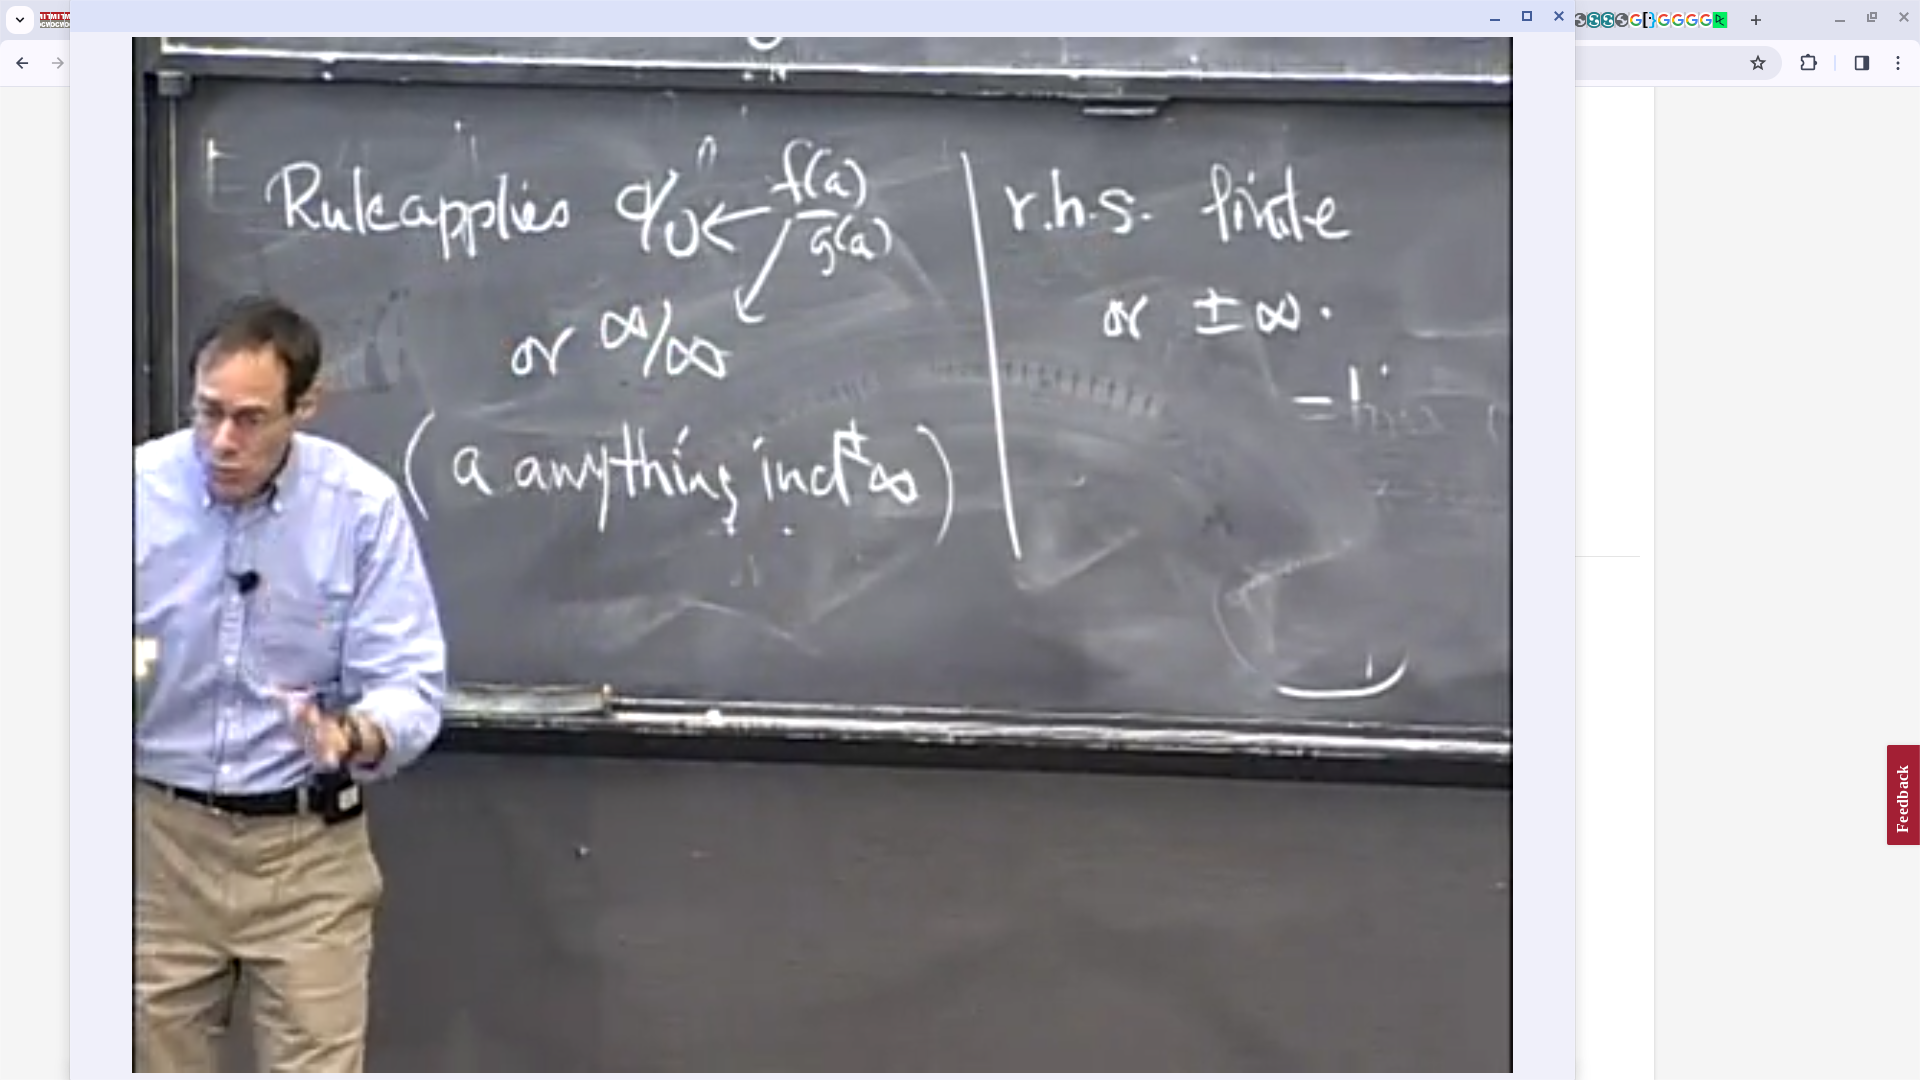 Rule applies 0/0 ← f(a)/g(a)
or ∞/∞
(a anything incl ±∞)
r.h.s. finite
or ±∞.
Feedback